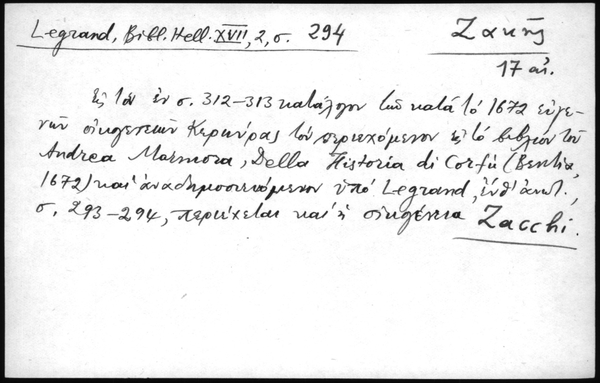 Legrand, Bibl. Hell. XVII, 2, σ. 294
Ζακῆς
17 αἰ.
Εἰς τὸν ἐν σ. 312-313 κατάλογον τῶν κατὰ τὸ 1672 εὐγε-
νῶν οἰκογενειῶν Κερκύρας τὸν περιεχόμενον εἰς τὸ βιβλίον τοῦ
Andrea Marmora, Della Historia di Corfù (Βενετία,
1672) καὶ ἀναδημοσιευόμενον ὑπὸ Legrand, ἔνθ' ἀνωτ.,
σ. 293-294, περιέχεται καὶ ἡ οἰκογένεια Zacchi.